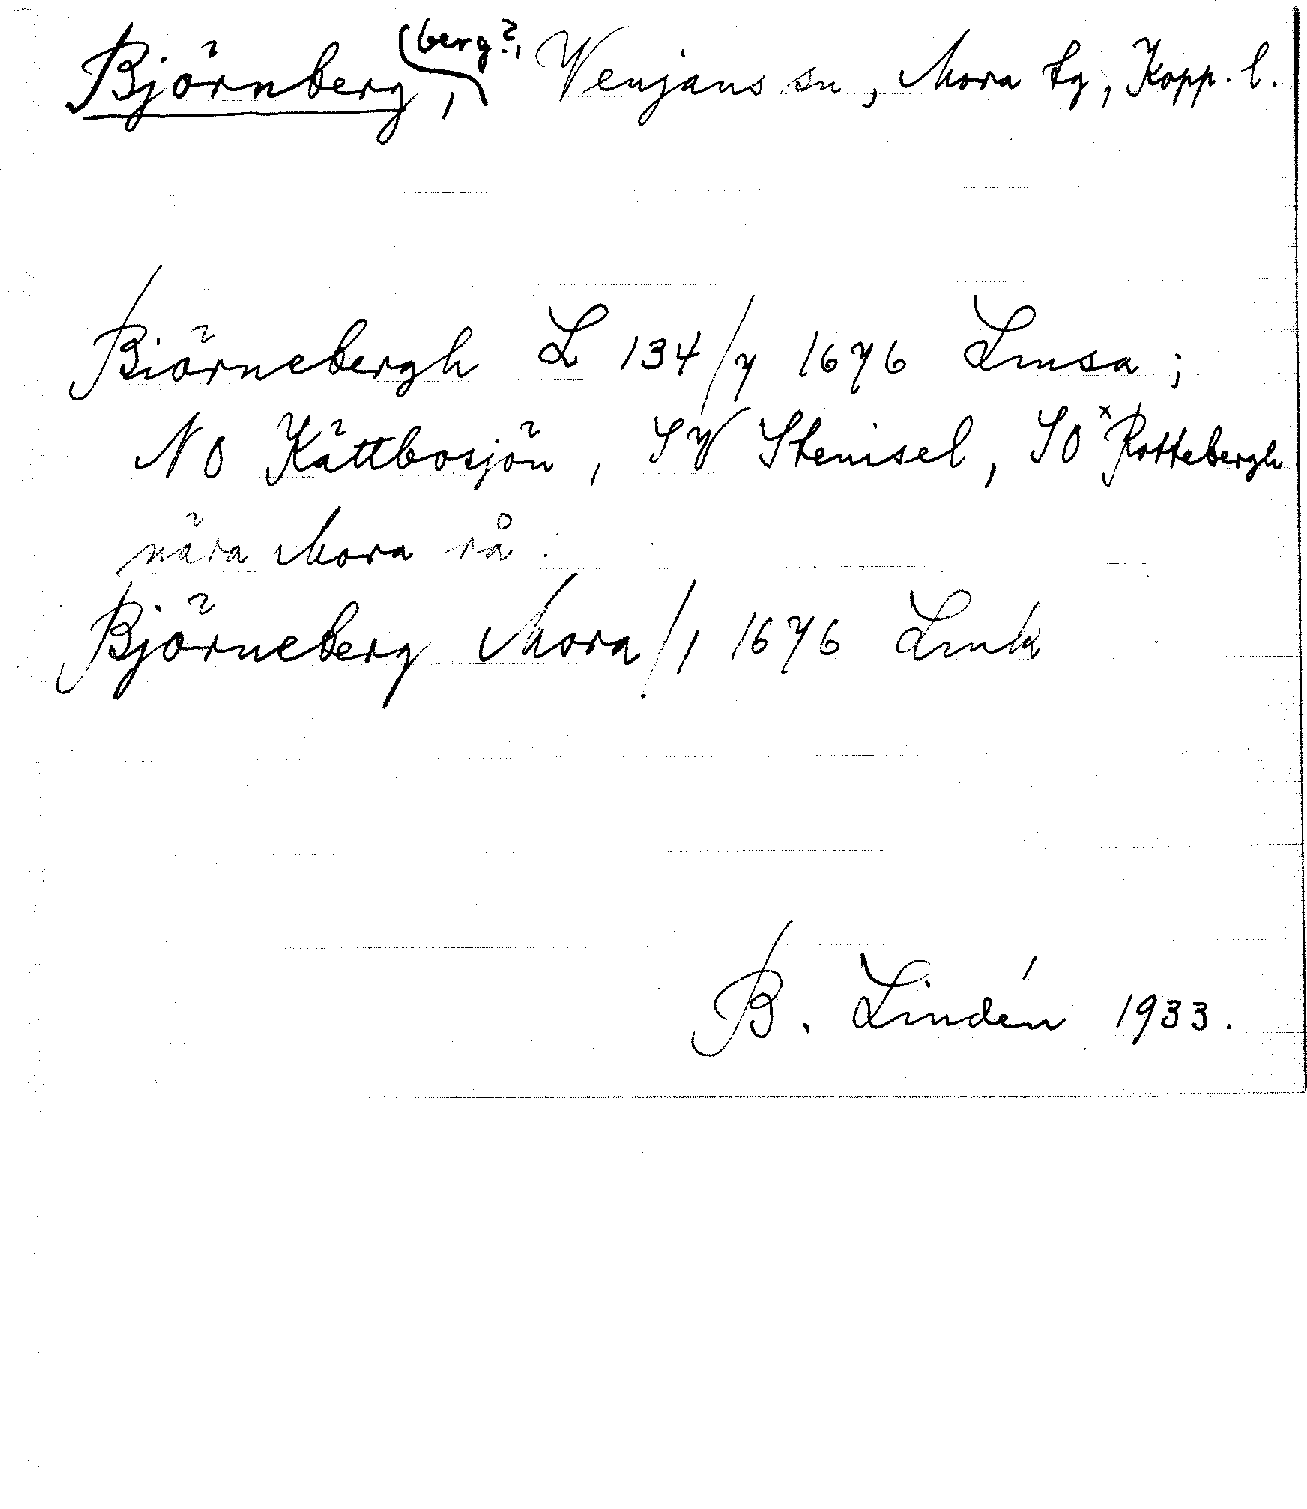 Björnberg, (berg?), Venjans sn, Mora tg, Kopp. l.
Biörnebergh L 134/7 1676 Lmsa;
NO Kättbosjön, SV Stenisel, SO ˣRottebergh
nära Mora rå.
Björneberg Mora/1 1676 Lmk
B. Lindén 1933.